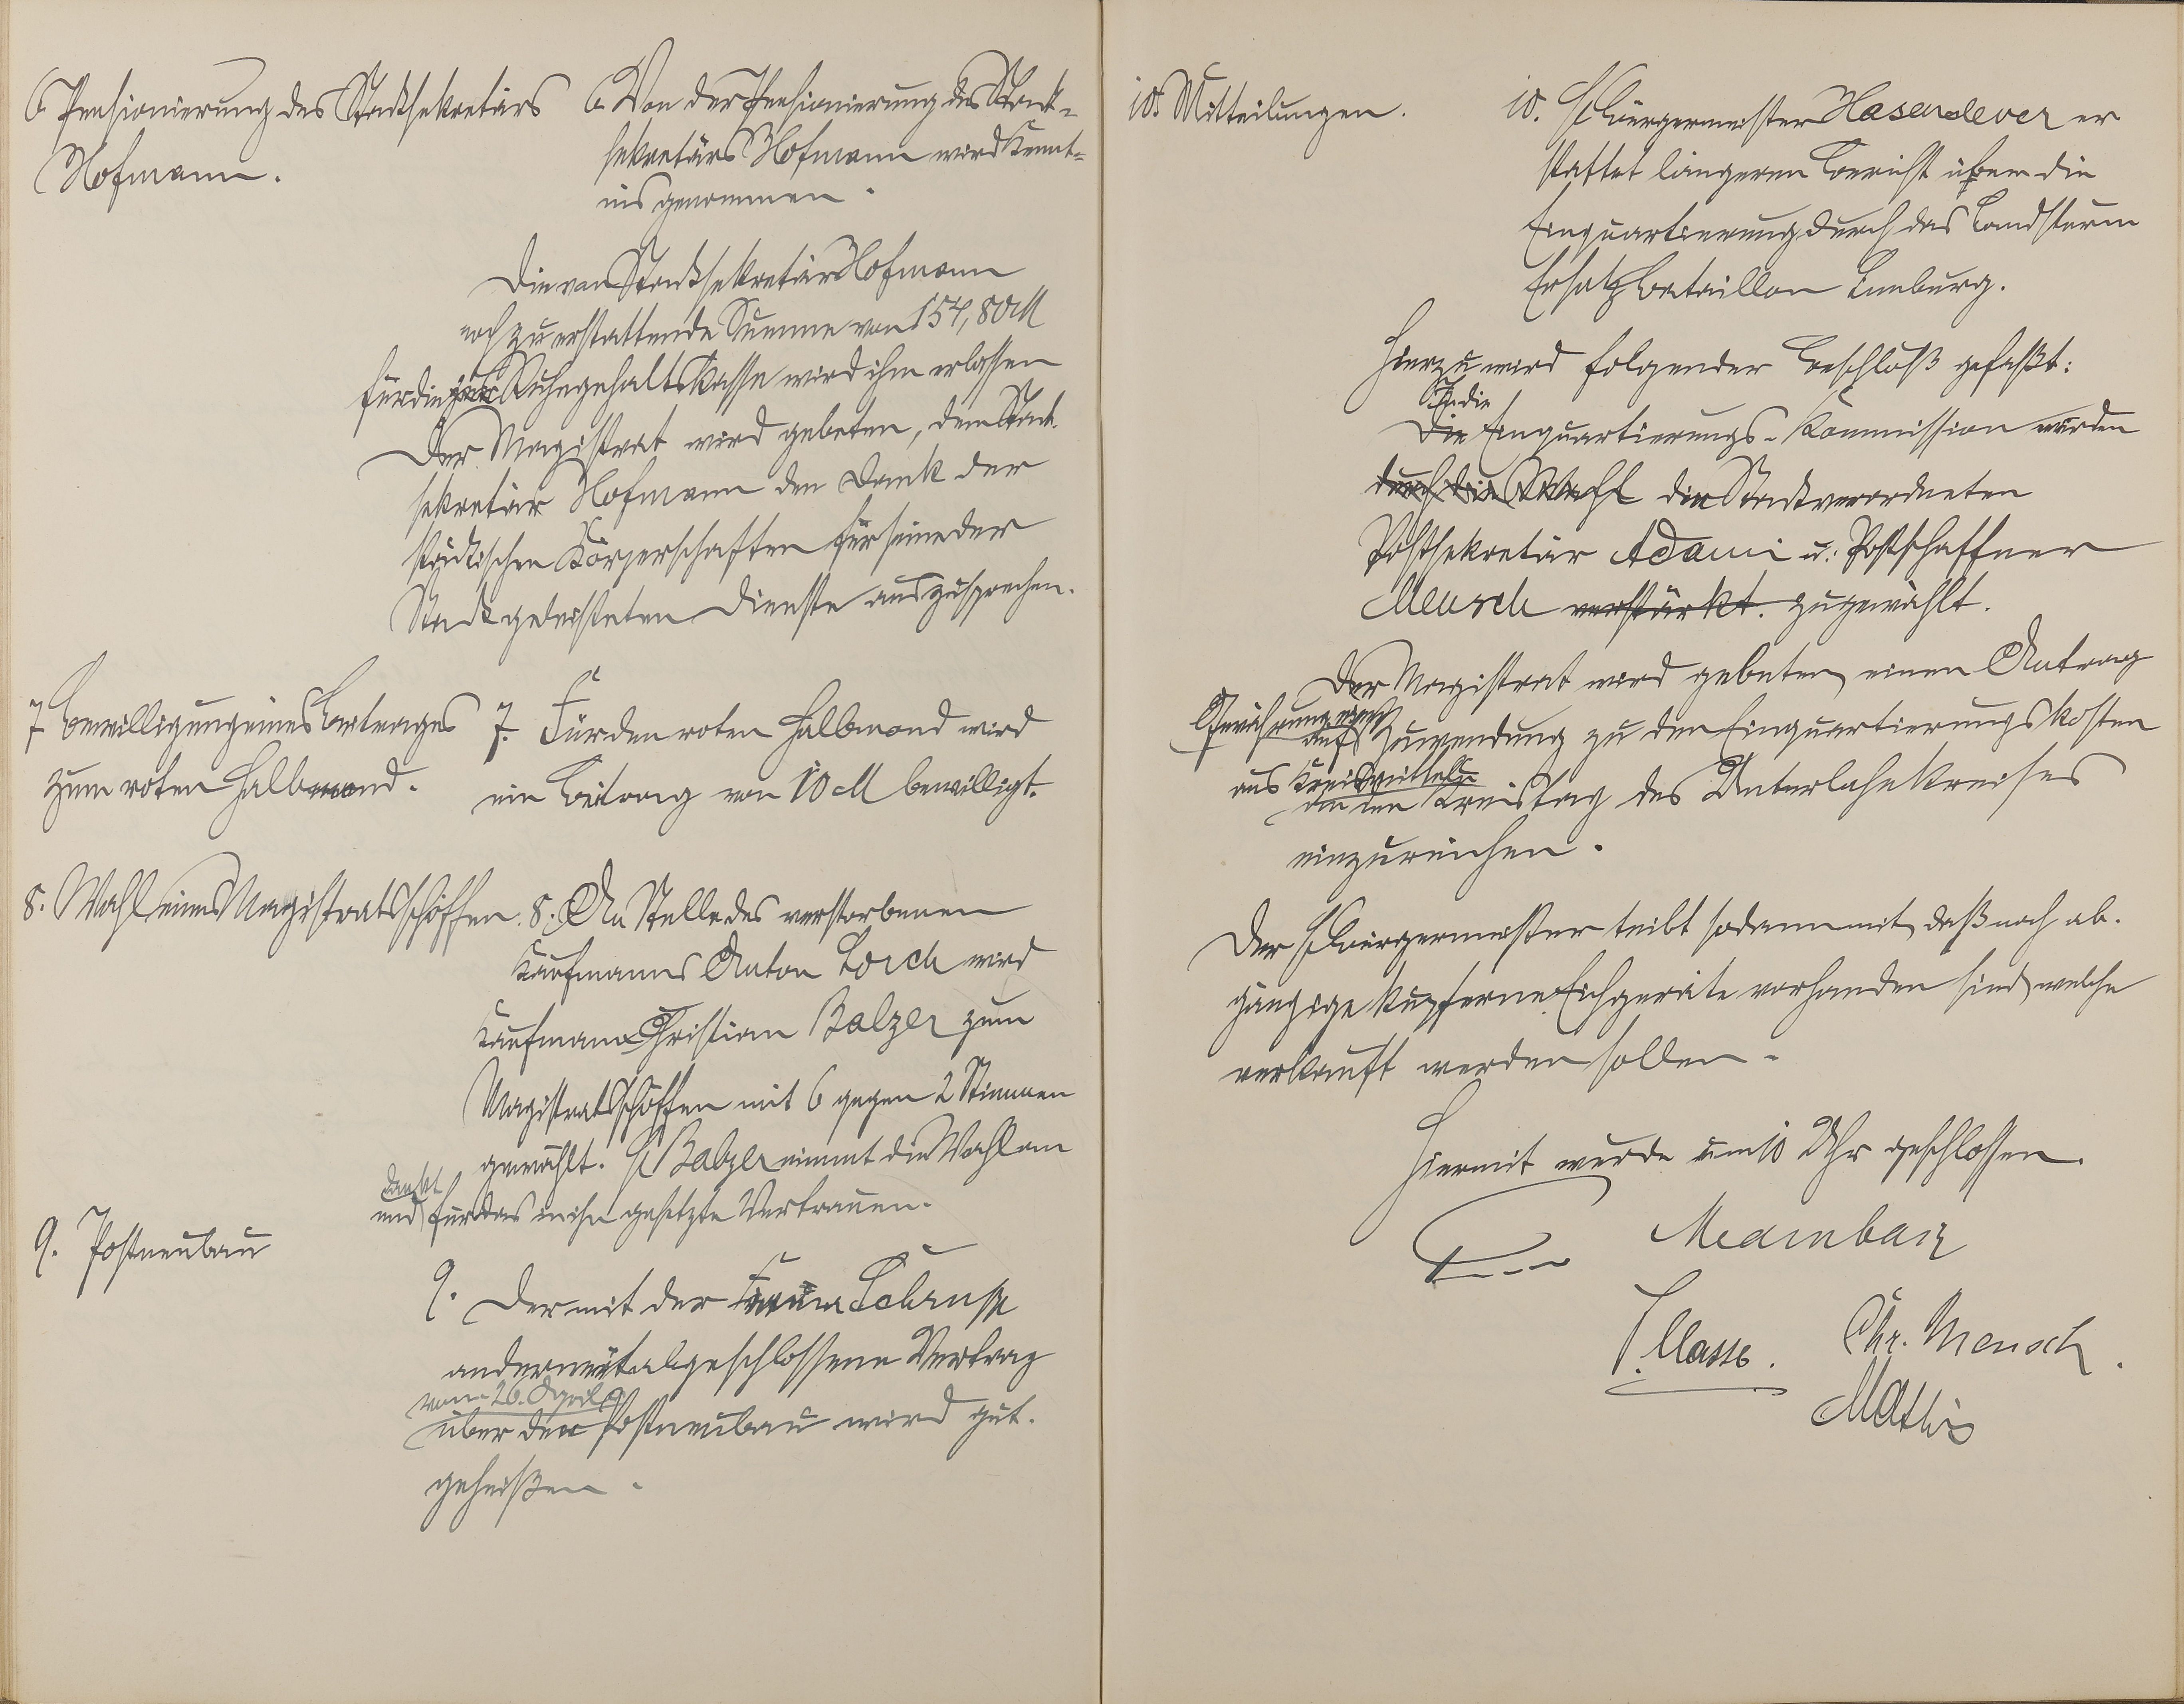 6. Pensionierung des Stadtsekretärs
Hofmann.
6. Von der Pensionierung des Stadt-
sekretärs Hofmann wird Kennt-
nis genommen.
Die von Stadtsekretär Hofmann
noch zu erstattende Summe von 154,80 M
für die Ruhegehaltskasse wird ihm erlassen
Der Magistrat wird gebeten, dem Stadt-
sekretär Hofmann den Dank der
städtischen Körperschaften für seine der
Stadt geleisteten Dienste auszusprechen.
7. Bewilligung eines Beitrages
zum roten Halbmond.
7. Für den roten Halbmond wird
ein Beitrag von 10 M bewilligt.
8. Wahl eines Magistratsschöffen.
8. An Stelle des verstorbenen
Kaufmanns Anton Lorch wird
Kaufmann Christian Balzer zum
Magistratsschöffen mit 6 gegen 2 Stimmen
gewählt. H Balzer nimmt die Wahl an
dankt
und für das in ihn gesetzte Vertrauen.
9. Postneubau
9. Der mit der Firma
anderweit abgeschlossene Vertrag
vom 26. April
über den Postneubau wird gut-
geheißen.
10. Mitteilungen.
10. H Bürgermeister Hasenclever er
stattet längeren Bericht über die
Einquartierung durch das Landsturm
Ersatz Bataillon Limburg.
Hierzu wird folgender Beschluß gefaßt:
In die
Die Einquartierungs-Kommission wurden
durch die Wahl die Stadtverordneten
Postsekretär Adami u. Postschaffner
Mensch verstärkt. zugewählt.
Der Magistrat wird gebeten, einen Antrag
Gewährung einer
auf Zuwendung zu den Einquartierungskosten
aus Kreismitteln
an den Kreistag des Unterlahnkreises
einzureichen.
Der H Bürgermeister teilt sodann mit, daß noch ab-
gängige kupferne Eichgeräte vorhanden sind, welche
verkauft werden sollen.
Hiermit wurde um 10 Uhr geschlossen.
Chr. Mensch.
Mathis